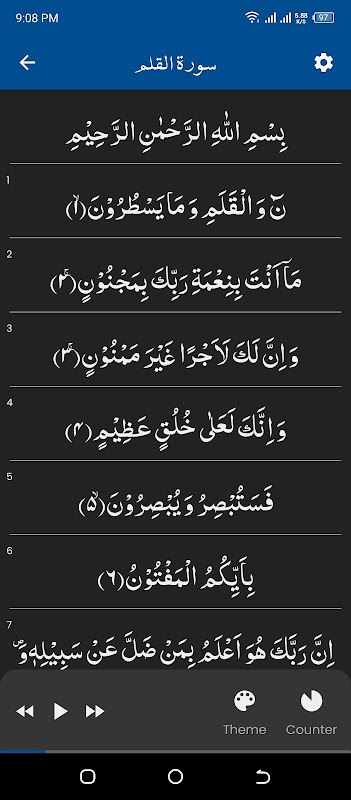 9:08 PM 5.88 K/S 97
سورة القلم
بِسْمِ اللهِ الرَّحْمٰنِ الرَّحِيْمِ
1
نٓ وَ الْقَلَمِ وَ مَا يَسْطُرُوْنَۙ(۱)
2
مَاۤ اَنْتَ بِنِعْمَةِ رَبِّكَ بِمَجْنُوْنٍۚ(۲)
3
وَ اِنَّ لَكَ لَاَجْرًا غَیْرَ مَمْنُوْنٍۚ(۳)
4
وَ اِنَّكَ لَعَلٰى خُلُقٍ عَظِیْمٍ(۴)
5
فَسَتُبْصِرُ وَ یُبْصِرُوْنَۙ(۵)
6
بِاَیِّكُمُ الْمَفْتُوْنُ(۶)
7
اِنَّ رَبَّكَ هُوَ اَعْلَمُ بِمَنْ ضَلَّ عَنْ سَبِیْلِهٖ۪-وَ
Theme Counter